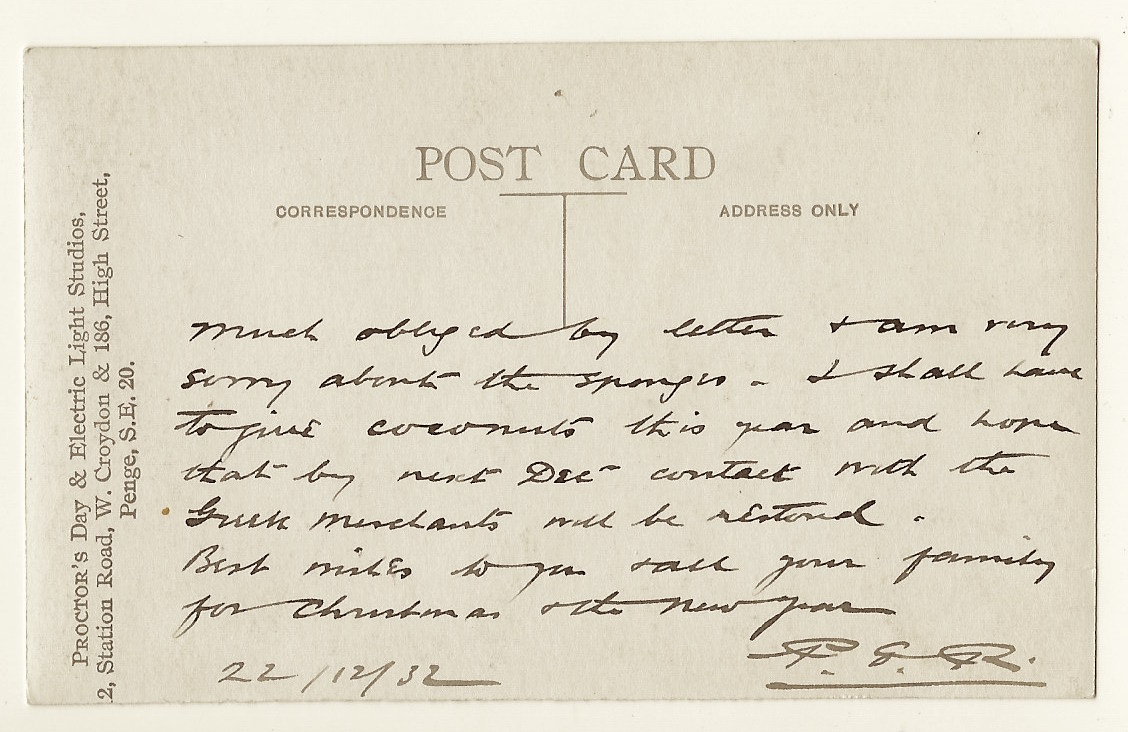 POST CARD
CORRESPONDENCE
ADDRESS ONLY
PROCTOR'S Day & Electric Light Studios,
2, Station Road, W. Croydon & 186, High Street,
Penge, S.E. 20.
Much obliged by letter & am very
sorry about the sponges. I shall have
to give coconuts this year and hope
that by next Dec contact with the
Greek merchants will be restored.
Best wishes to you & all your family
for Christmas & the New Year
22/12/32
P. E. R.